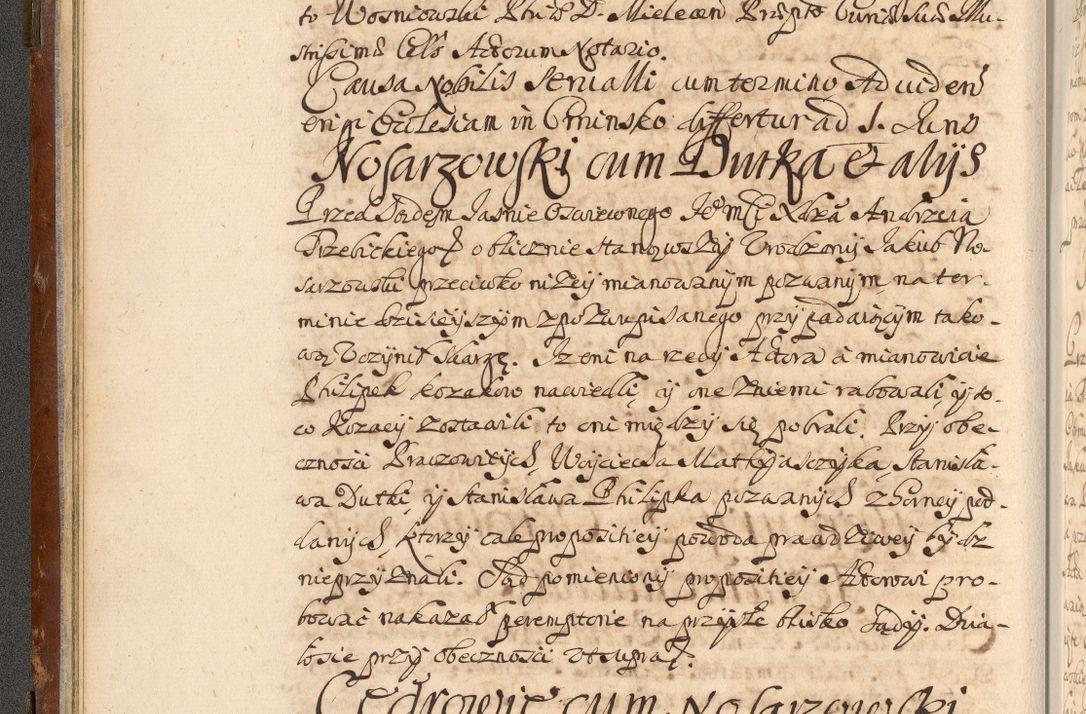 to Wosniowski Phi et D. Mielecen Prspto Curiæ Suæ Illu-
strissimæ Cels Actorum Notario.
Causa Nobilis Semialli cum termino Ad videnꝰ
erigi Ecclesiam in Cminsko differtur ad J. Juris
Nosarzowski cum Dutka et alijs
Przed Sądem Jasnie Oswieconego Je° mCi Xdza Andrzeia
Trzebickiego oblicznie stanowszy Urodzony Jakub No-
sarzowski przeciwko nizey mianowanym pozwanym, na ter-
minie dzisieyszym z pozwu pisanego przypadaiącym tako-
wą Uczynił skargę. Iz oni na rzeczy Actora a mianowicie
Philipek kozakow nawiedli, ij one z niemi rabowali, ij co-
co Kozacy zostawili to oni między się pobrali. Przy obe-
cznosci Praczowitych, Woyciecha Matkyasczyka, Stanisła-
wa Dutki, ij Stanisława Philipka pozwanych z Gorney pod-
danych, ktorzy całe propositiey powoda prawdziwey bydz
nieprzyznali. Sąd pomieniony propositiey Actorowi pro-
bować nakazał peremptorie na przyszłe blisko Sądy. Dzia-
łosie przy obecznosci ut supra.
Cedrowic cum Nosarzowski